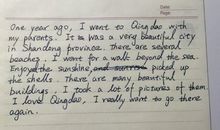 Date
Page
One year ago, I want to Qingdao with
my parents. It was a very beautiful city
in Shandong province. There are several
beaches. I want for a walk beyond the sea.
Enjoyed the sunshine, picked up
the shells. There are many beautiful
buildings. I took a lot of pictures of them.
I love Qingdao, I really want to go there
again.